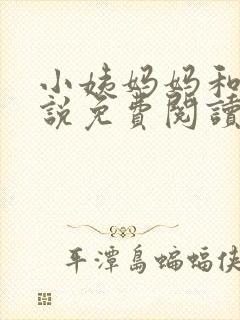 小姨妈妈和
說免費閱讀
平潭島蝙蝠俠